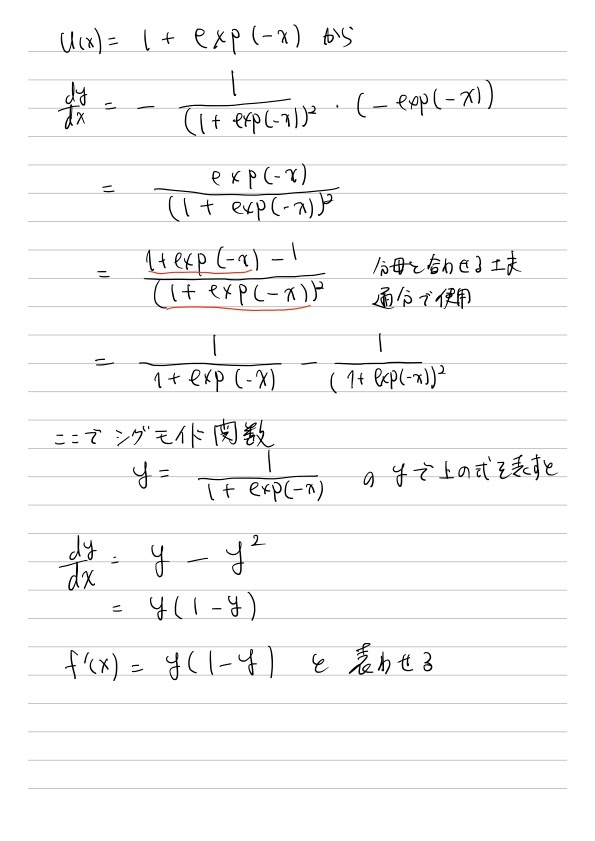 u(x) = 1 + exp(-x) から
dy/dx = - 1/(1 + exp(-x))² · (- exp(-x))
= exp(-x)/(1 + exp(-x))²
= (1+exp(-x) - 1)/(1 + exp(-x))² 分母と合わせる工夫
通分で使用
= 1/(1 + exp(-x)) - 1/(1 + exp(-x))²
ここで シグモイド関数
y = 1/(1 + exp(-x)) の yで上の式を表すと
dy/dx = y - y²
= y(1-y)
f'(x) = y(1-y) と 表わせる